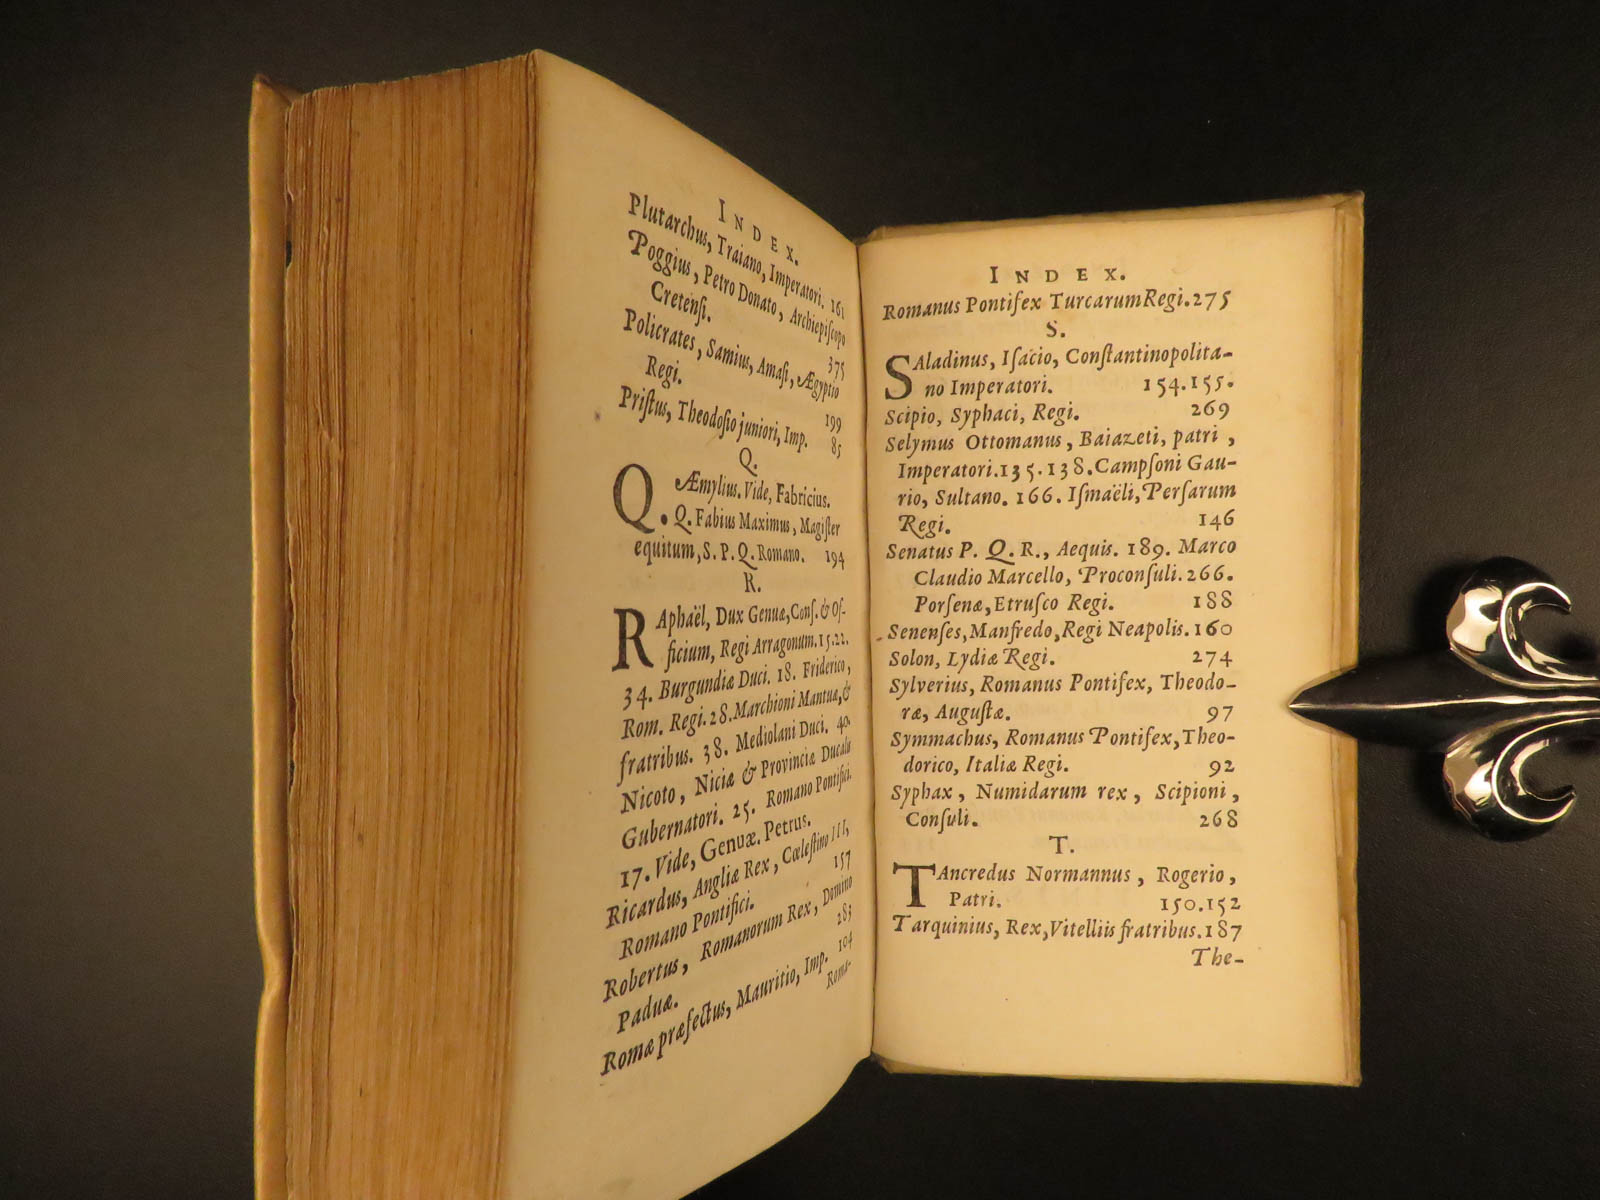 INDEX.
Plutarchus, Traiano, Imperatori. 161
Poggius, Petro Donato, Archiepiſcopo
Cretenſi. 375
Policrates, Samius, Amaſi, Ægyptio
Regi. 199
Priſtus, Theodoſio juniori, Imp. 85
Q.
Q. Æmylius. Vide, Fabricius.
Q. Fabius Maximus, Magiſter
equitum, S. P. Q. Romano. 194
R.
RAphaël, Dux Genuæ, Conſ. & Of-
ficium, Regi Arragonum. 15.22.
34. Burgundiæ Duci. 18. Friderico,
Rom. Regi. 28. Marchioni Mantuæ, &
fratribus. 38. Mediolani Duci. 40.
Nicoto, Niciæ & Provinciæ Ducalis
Gubernatori. 25. Romano Pontifici.
17. Vide, Genuæ. Petrus.
Ricardus, Angliæ Rex, Cœleſtino III,
Romano Pontifici. 157
Robertus, Romanorum Rex, Domino
Paduæ. 283
Romæ præfectus, Mauritio, Imp. 104
Roma-
INDEX.
Romanus Pontifex Turcarum Regi. 275
S.
SAladinus, Iſacio, Conſtantinopolita-
no Imperatori. 154.155.
Scipio, Syphaci, Regi. 269
Selymus Ottomanus, Baiazeti, patri,
Imperatori. 135.138. Campſoni Gau-
rio, Sultano. 166. Iſmaëli, Perſarum
Regi. 146
Senatus P. Q. R., Aequis. 189. Marco
Claudio Marcello, Proconſuli. 266.
Porſenæ, Etruſco Regi. 188
Senenſes, Manfredo, Regi Neapolis. 160
Solon, Lydiæ Regi. 274
Sylverius, Romanus Pontifex, Theodo-
ræ, Auguſtæ. 97
Symmachus, Romanus Pontifex, Theo-
dorico, Italiæ Regi. 92
Syphax, Numidarum rex, Scipioni,
Conſuli. 268
T.
TAncredus Normannus, Rogerio,
Patri. 150.152
Tarquinius, Rex, Vitelliis fratribus. 187
The-